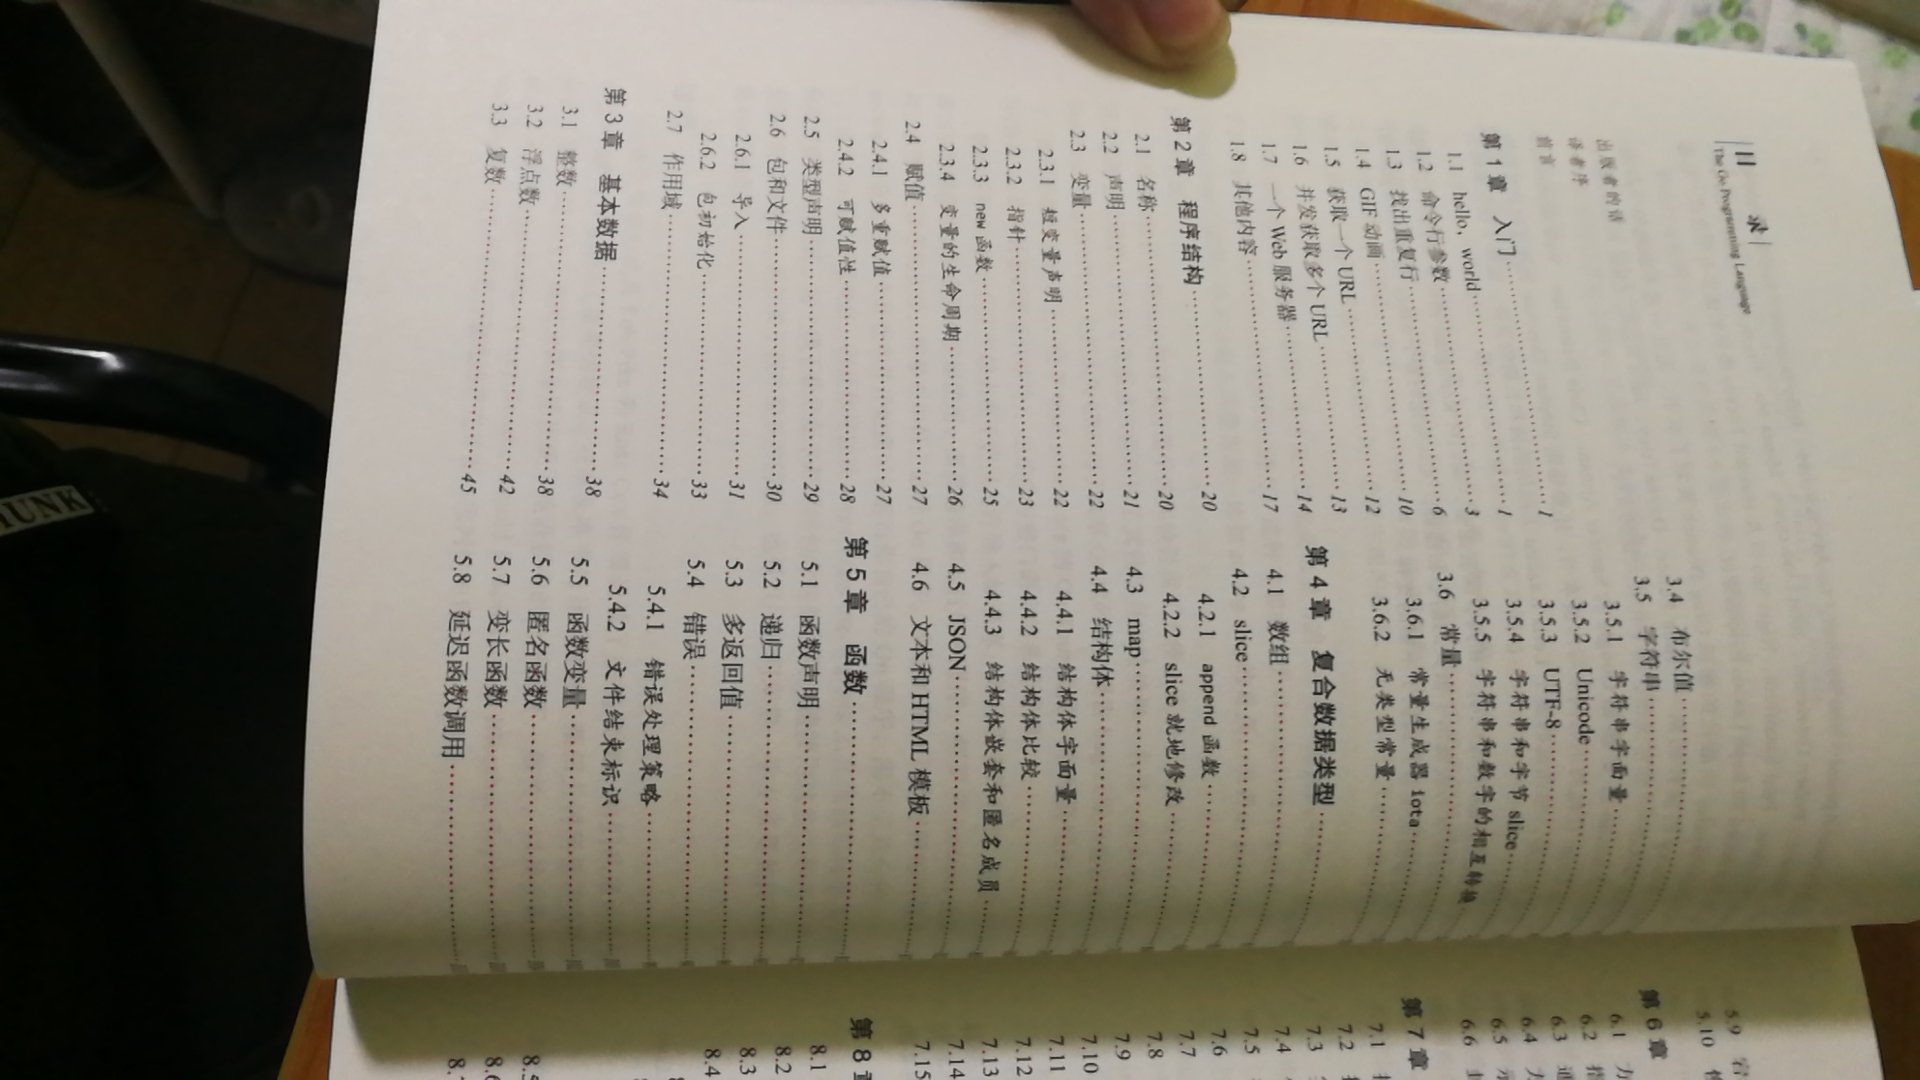 目 录
The Go Programming Language
出版者的话
译者序
前言
第 1 章 入门 1
1.1 hello, world 1
1.2 命令行参数 3
1.3 找出重复行 6
1.4 GIF 动画 10
1.5 获取一个 URL 12
1.6 并发获取多个 URL 13
1.7 一个 Web 服务器 14
1.8 其他内容 17
第 2 章 程序结构 20
2.1 名称 20
2.2 声明 21
2.3 变量 22
2.3.1 短变量声明 22
2.3.2 指针 23
2.3.3 new 函数 25
2.3.4 变量的生命周期 26
2.4 赋值 27
2.4.1 多重赋值 27
2.4.2 可赋值性 28
2.5 类型声明 29
2.6 包和文件 30
2.6.1 导入 31
2.6.2 包初始化 33
2.7 作用域 34
第 3 章 基本数据 38
3.1 整数 38
3.2 浮点数 42
3.3 复数 45
3.4 布尔值
3.5 字符串
3.5.1 字符串字面量
3.5.2 Unicode
3.5.3 UTF-8
3.5.4 字符串和字节 slice
3.5.5 字符串和数字的相互转换
3.6 常量
3.6.1 常量生成器 iota
3.6.2 无类型常量
第 4 章 复合数据类型
4.1 数组
4.2 slice
4.2.1 append 函数
4.2.2 slice 就地修改
4.3 map
4.4 结构体
4.4.1 结构体字面量
4.4.2 结构体比较
4.4.3 结构体嵌套和匿名成员
4.5 JSON
4.6 文本和 HTML 模板
第 5 章 函数
5.1 函数声明
5.2 递归
5.3 多返回值
5.4 错误
5.4.1 错误处理策略
5.4.2 文件结束标识
5.5 函数变量
5.6 匿名函数
5.7 变长函数
5.8 延迟函数调用
5.9
5.10
第 6 章
6.1
6.2
6.3
6.4
6.5
6.6
第 7 章
7.1
7.2
7.3
7.4
7.5
7.6
7.7
7.8
7.9
7.10
7.11
7.12
7.13
7.14
7.15
第 8
8.1
8.2
8.3
8.4
8.5